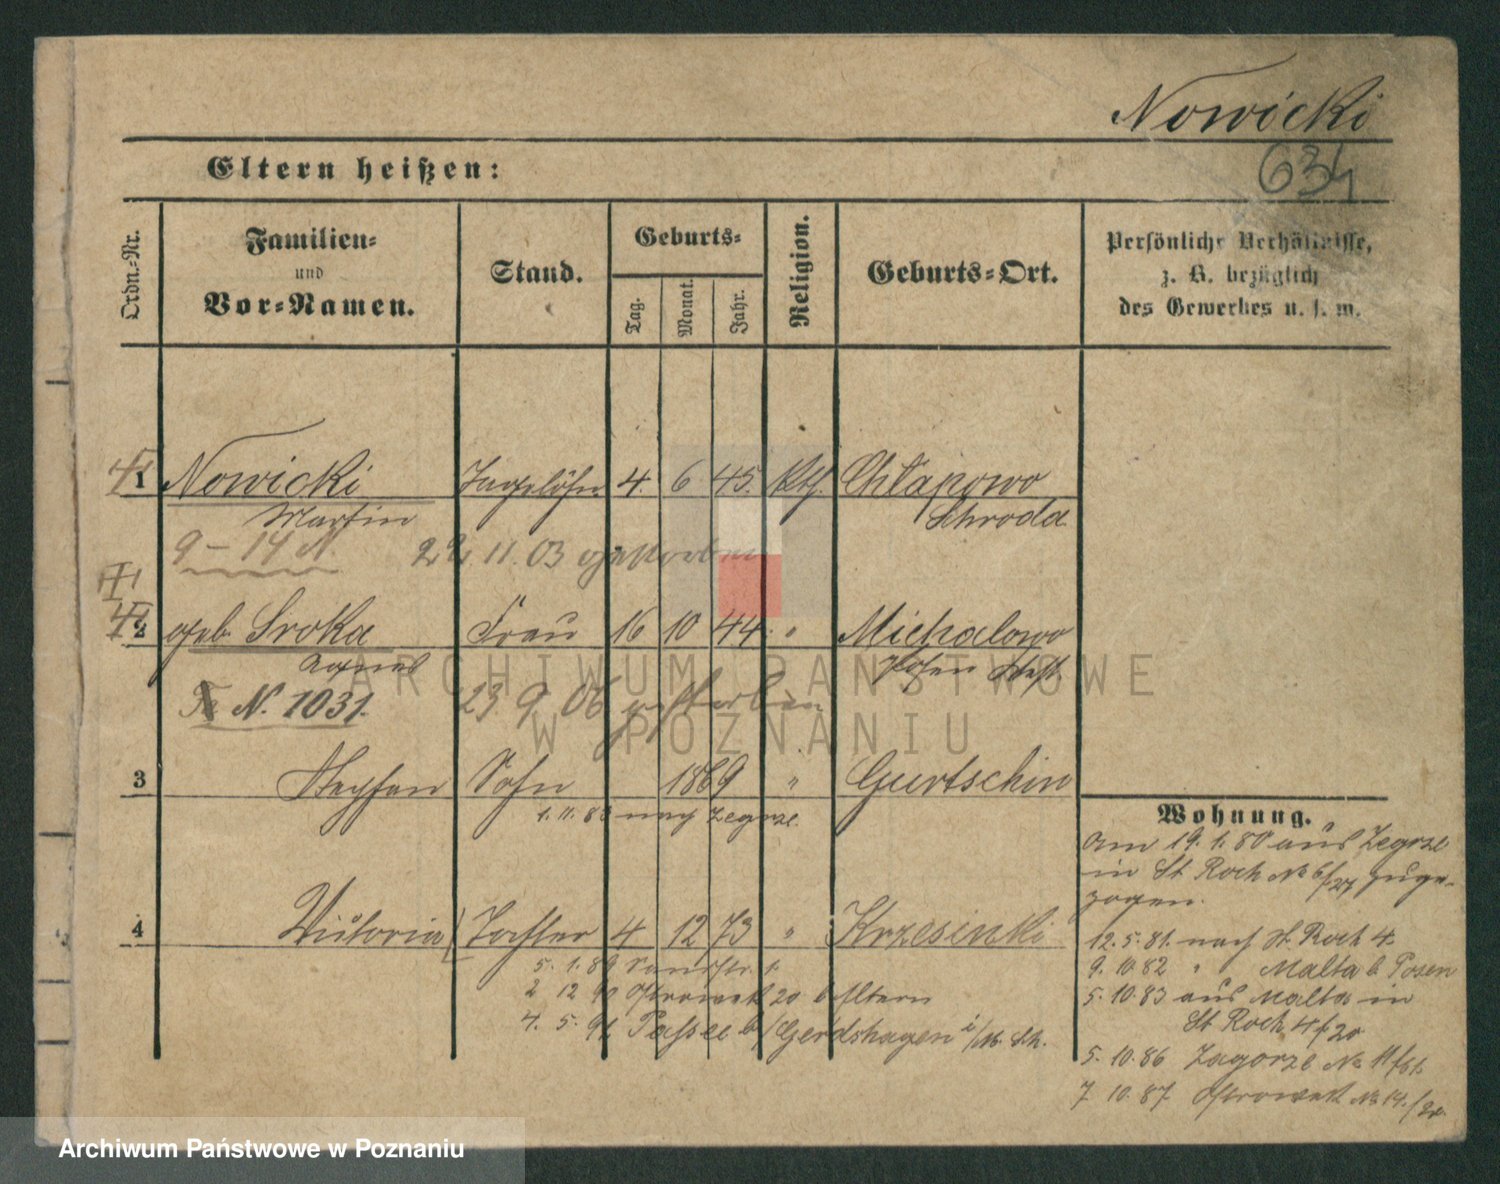 Nowicki
634
Eltern heißen:
Ordn.-Nr.
Familien-
und
Vor-Namen.
Stand.
Geburts-
Tag.
Monat.
Jahr.
Religion.
Geburts-Ort.
Persönliche Verhältnisse,
z. B. bezüglich
des Gewerbes u. s. w.
1 Nowicki Tagelöhn. 4. 6 45. kth. Chłapowo
Martin Schroda
9 - 14 N. 22. 11. 03 gestorben
2 geb. Sroka Frau 16 10 44. " Michalowo
Agnes Posen
N. 1031. 23. 9. 06 gestorben
3 Stephan Sohn 1869 " Gurtschin
1. 11. 88 nach Zegrze.
4 Victoria Tochter 4 12 73 " Krzesinki
5. 1. 89 Sandstr. 1.
2 12 90 Ostrowek 20 b Eltern
4. 5. 91 Passee b/Gerdshagen i/M. Sch.
Wohnung.
Am 19. 1. 80 aus Zegrze
in St Roch No 6/27 zuge-
zogen.
12. 5. 81. nach St. Roch 4.
9. 10. 82 " Malta b Posen
5. 10. 83 aus Malta in
St Roch 4/20
5. 10. 86 Zagorze No 11/61.
7 10. 87. Ostrowek No 14./20.
ARCHIWUM PAŃSTWOWE
W POZNANIU
Archiwum Państwowe w Poznaniu